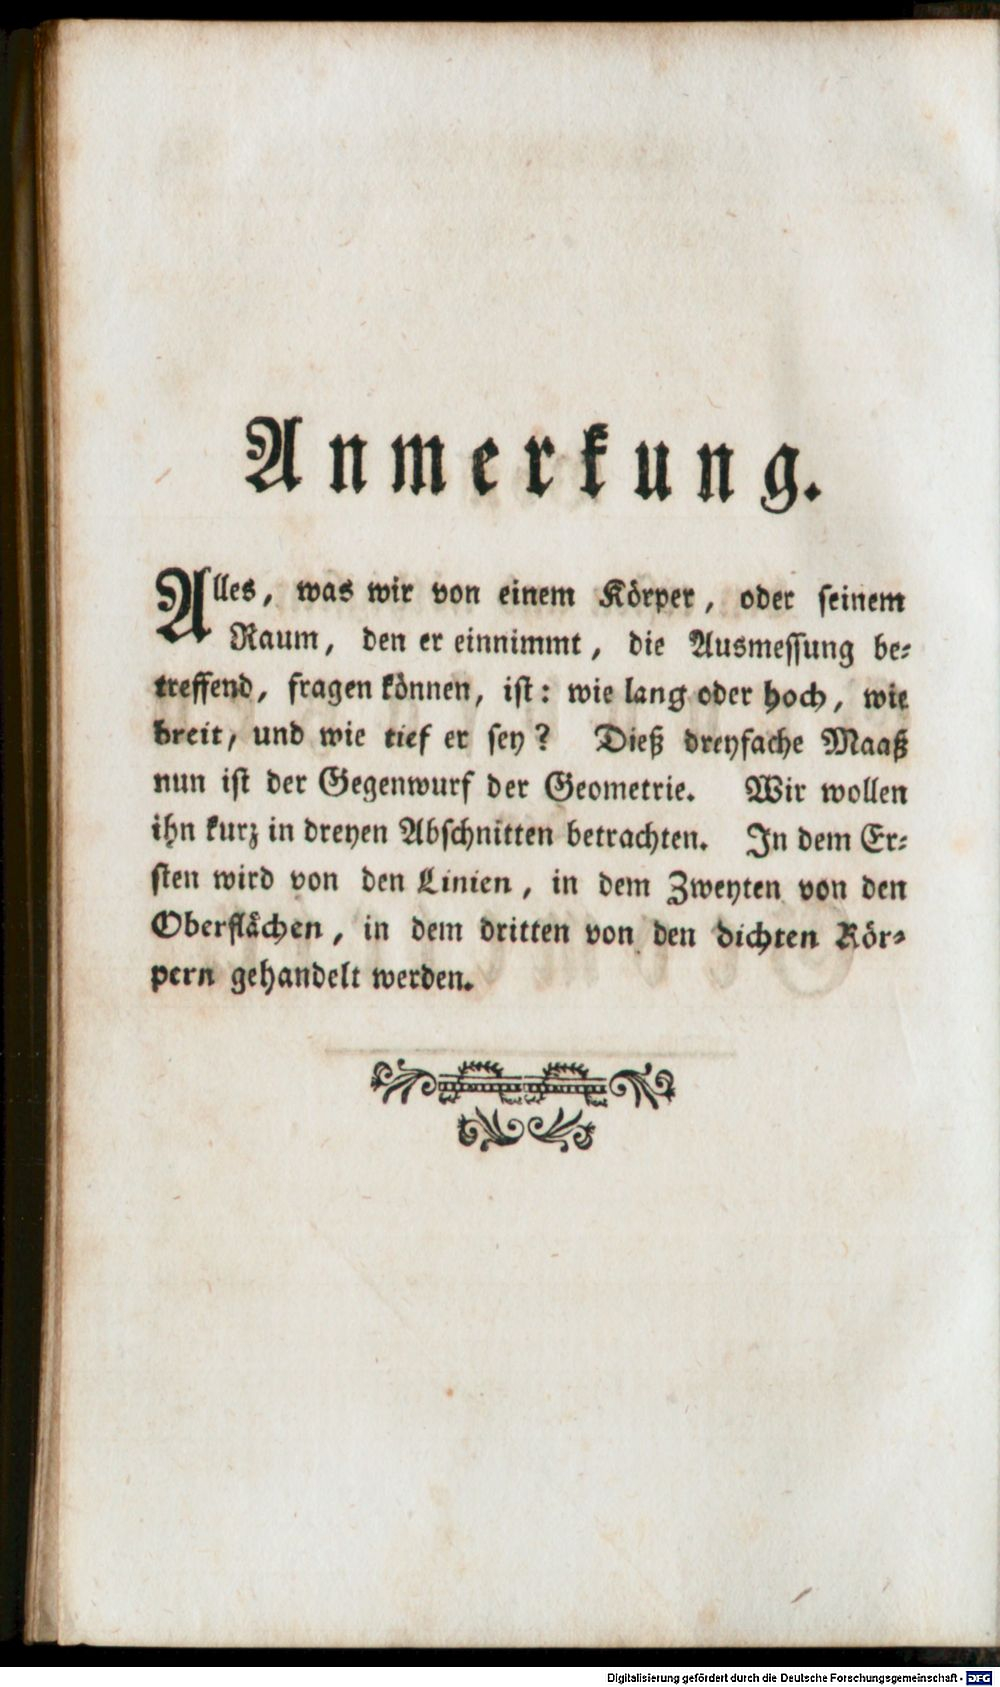 Anmerkung.
Alles, was wir von einem Körper, oder seinem
Raum, den er einnimmt, die Ausmessung be-
treffend, fragen können, ist: wie lang oder hoch, wie
breit, und wie tief er sey? Dieß dreyfache Maaß
nun ist der Gegenwurf der Geometrie. Wir wollen
ihn kurz in dreyen Abschnitten betrachten. In dem Er-
sten wird von den Linien, in dem Zweyten von den
Oberflächen, in dem dritten von den dichten Kör-
pern gehandelt werden.
Digitalisierung gefördert durch die Deutsche Forschungsgemeinschaft - DFG